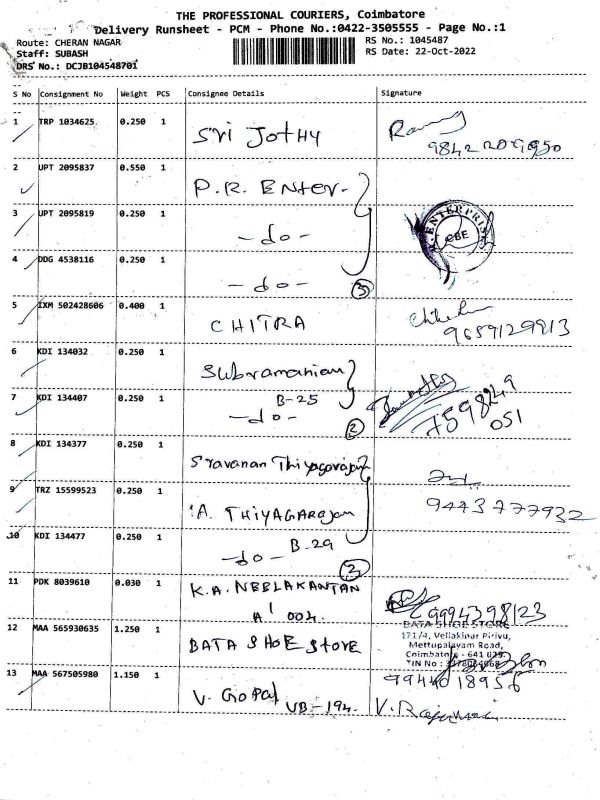 THE PROFESSIONAL COURIERS, Coimbatore
Delivery Runsheet - PCM - Phone No.:0422-3505555 - Page No.:1
Route: CHERAN NAGAR RS No.: 1045487
Staff: SUBASH RS Date: 22-Oct-2022
DRS No.: DCJB104548701
S No Consignment No Weight PCS Consignee Details Signature
1 TRP 1034625 0.250 1 Sri Jothy
9842209950
2 UPT 2095837 0.550 1 P.R. Enter-
3 UPT 2095819 0.250 1 -do-
ENTERPRISES
CBE
4 DDG 4538116 0.250 1 -do- 3
5 IXM 502428606 0.400 1 CHITRA
9659129913
6 KDI 134032 0.250 1 Subramanian
7 KDI 134407 0.250 1 -do- B-25 2
759849
051
8 KDI 134377 0.250 1 Sravanan Thiyagarajan
9 TRZ 15599523 0.250 1 A. THIYAGARajan
9443777932
10 KDI 134477 0.250 1 -do- B-29
11 PDK 8039610 0.030 1 K.A. NEELAKANTAN
A' 004.
9994398123
12 MAA 565930635 1.250 1 BATA SHOE Store
BATA SHOE STORE
171/4, Vellakinar Pirivu,
Mettupalayam Road,
Coimbatore - 641 029.
TIN No :
13 MAA 567505980 1.150 1 V. Gopal VB-194.
9944018956
V.